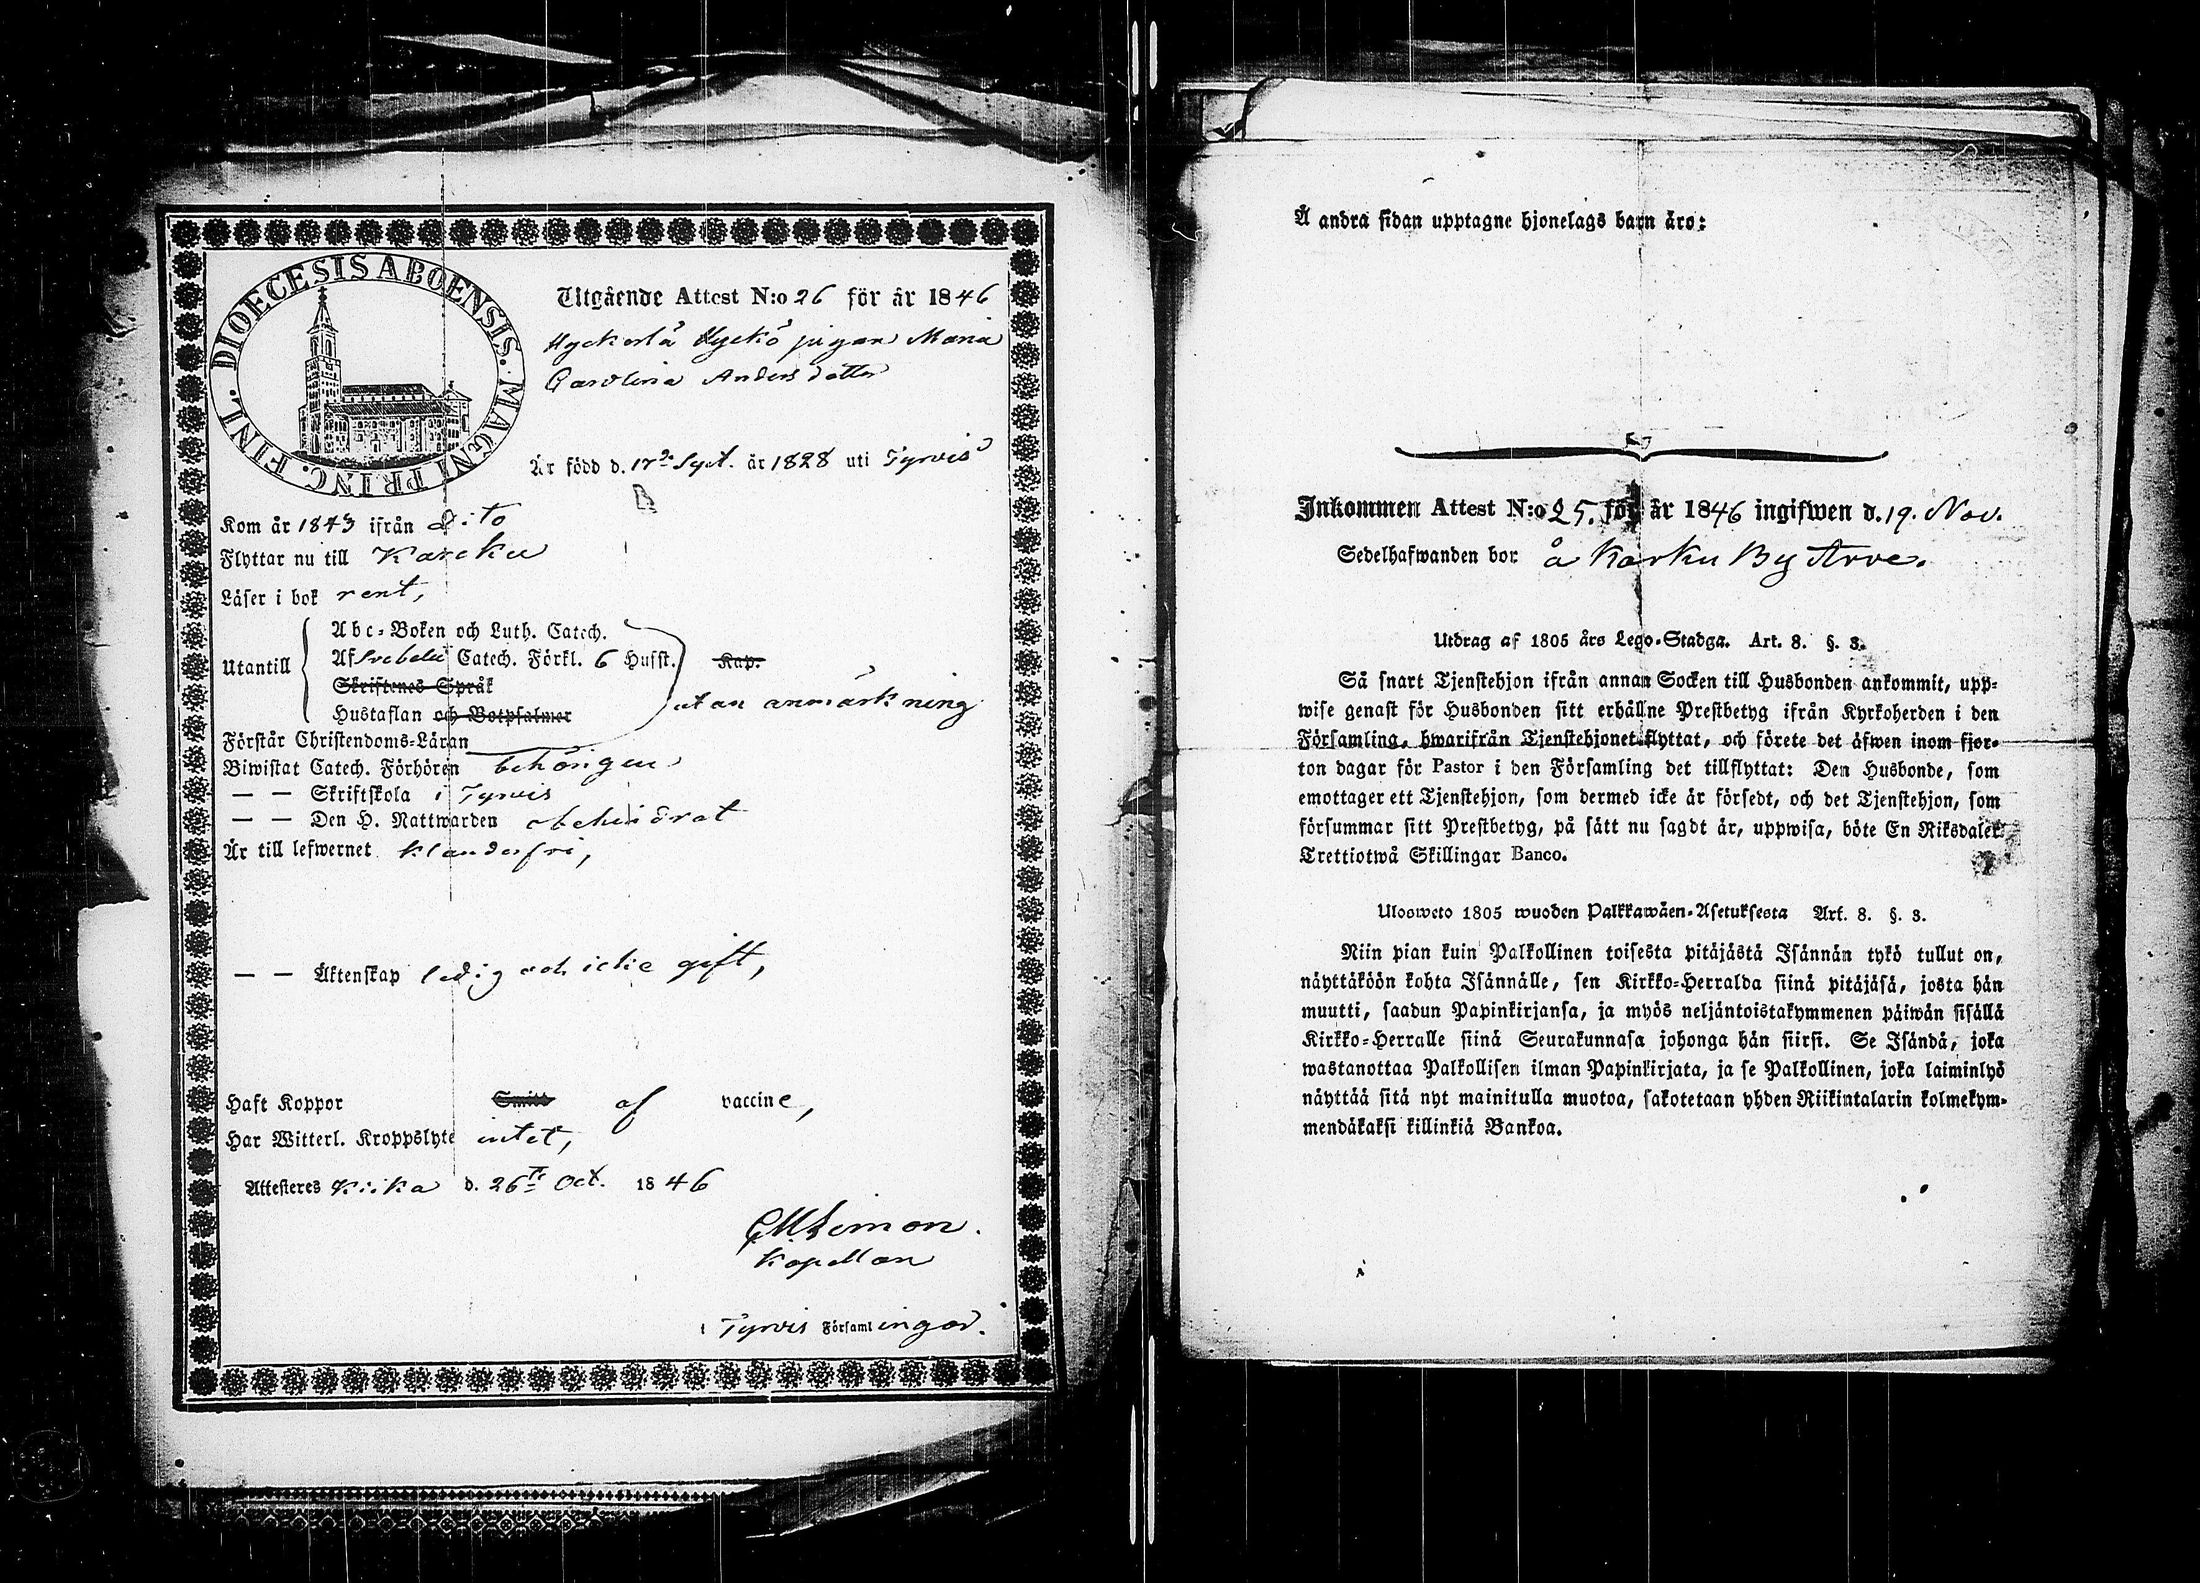 DIOECESIS ABOENSIS. MAGNI PRINC. FINL.
Utgående Attest N:o 26 för år 1846
Hyckerlä Hyckö pigan Maria
Carolina Andersdotter
Är född d. 17de Sept. år 1828 uti Tyrvis
Kom år 1843 ifrån Dito
Flyttar nu till Karcku
Läser i bok rent,
Abc-Boken och Luth. Catech.
Utantill Af Svebelii Catech. Förkl. 6 Husst. Kap.
Skriftenes Språk
Hustaflan och Botpsalmer utan anmärkning
Förstår Christendoms-Läran
Biwistat Catech. Förhören behörigen
— — Skriftskola i Tyrvis
— — Den H. Nattwarden obehindrat
Är till lefwernet klanderfri,
— — Äktenskap ledig och icke gift,
Haft Koppor af vaccine,
Har Witterl. Kroppslyte intet,
Attesteres Kiika d. 26te Oct. 1846
Kapellan
i Tyrvis Församlingar.
Å andra sidan upptagne hjonelags barn äro:
Inkommen Attest N:o 25. för år 1846 ingifwen d. 19. Nov.
Sedelhafwanden bor å Karku By Arve.
Utdrag af 1805 års Lego-Stadga. Art. 8. §. 3.
Så snart Tjenstehjon ifrån annan Socken till Husbonden ankommit, upp-
wise genast för Husbonden sitt erhållne Prestbetyg ifrån Kyrkoherden i den
Församling, hwarifrån Tjenstehjonet flyttat, och förete det äfwen inom fjor-
ton dagar för Pastor i den Församling det tillflyttat: Den Husbonde, som
emottager ett Tjenstehjon, som dermed icke är försedt, och det Tjenstehjon, som
försummar sitt Prestbetyg, på sätt nu sagdt är, uppwisa, böte En Riksdaler
Trettiotwå Skillingar Banco.
Ulosweto 1805 wuoden Palkkawäen-Asetuksesta Art. 8. §. 3.
Niin pian kuin Palkollinen toisesta pitäjästä Isännän tykö tullut on,
näyttäköön kohta Isännälle, sen Kirkko-Herralda siinä pitäjäsä, josta hän
muutti, saadun Papinkirjansa, ja myös neljäntoistakymmenen päiwän sisällä
Kirkko-Herralle siinä Seurakunnasa johonga hän siirsi. Se Isändä, joka
wastanottaa Palkollisen ilman Papinkirjata, ja se Palkollinen, joka laiminlyö
näyttää sitä nyt mainitulla muotoa, sakotetaan yhden Riikintalarin kolmekym-
mendäkaksi killinkiä Bankoa.